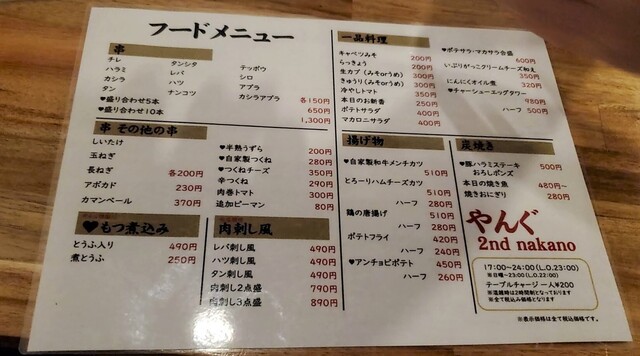 フードメニュー
串
チレ タンシタ テッポウ
ハラミ レバ シロ
カシラ ハツ アブラ
タン ナンコツ カシラアブラ 各150円
♥盛り合わせ5本 650円
♥盛り合わせ10本 1,300円
串 その他の串
しいたけ
玉ねぎ
長ねぎ 各200円
アボカド 230円
カマンベール 370円
♥半熟うずら 200円
♥自家製つくね 280円
♥つくねチーズ 350円
辛つくね 290円
肉巻トマト 300円
追加ピーマン 80円
♥もつ煮込み
とうふ入り 490円
煮とうふ 250円
肉刺し風
レバ刺し風 490円
ハツ刺し風 490円
タン刺し風 490円
肉刺し2点盛 790円
肉刺し3点盛 890円
一品料理
キャベツみそ 200円
らっきょう 200円
生カブ(みそorうめ) 300円
きゅうり(みそorうめ) 300円
冷やしトマト 350円
本日のお新香 250円
ポテトサラダ 400円
マカロニサラダ 400円
♥ポテサラ・マカサラ合盛 600円
いぶりがっこクリームチーズ和え 350円
にんにくオイル煮 320円
♥チャーシューエッグタワー 980円
ハーフ 500円
揚げ物
♥自家製和牛メンチカツ 510円
とろーりハムチーズカツ 510円
ハーフ 280円
鶏の唐揚げ 510円
ハーフ 280円
ポテトフライ 420円
ハーフ 240円
♥アンチョビポテト 450円
ハーフ 260円
炭焼き
♥豚ハラミステーキ 500円
おろしポンズ
本日の焼き魚 480円~
焼きおにぎり 280円
やんぐ
2nd nakano
17:00~24:00(L.O.23:00)
※日曜~23:00(L.O.22:00)
テーブルチャージ 一人¥200
※混雑時は2時間制となっております
※全て税込み価格となります
※表示価格は全て税込価格です。